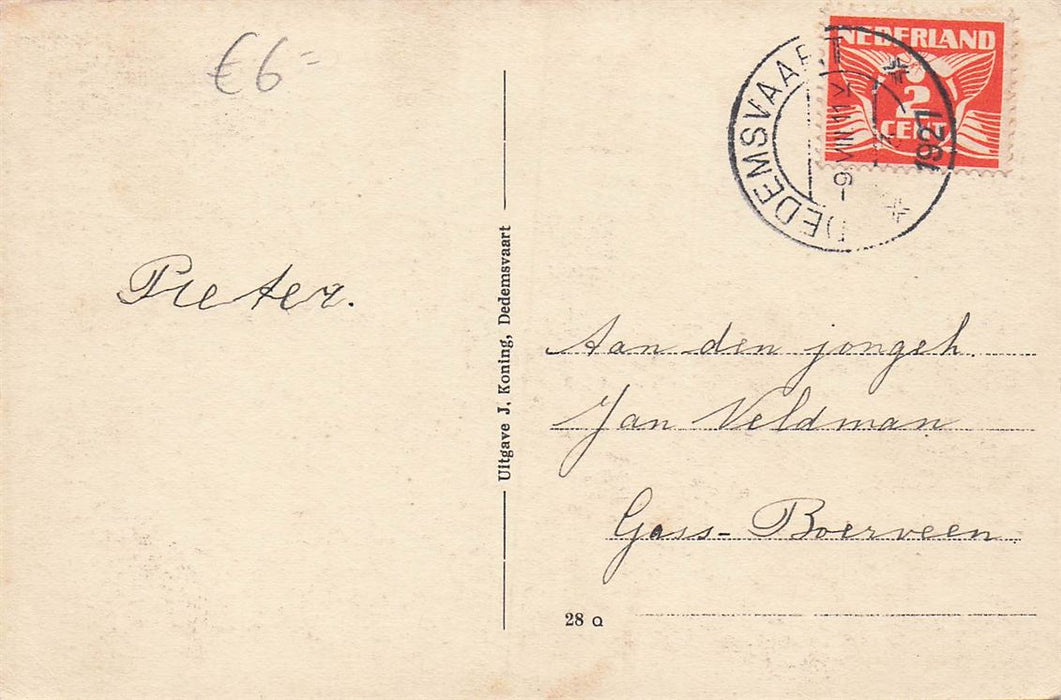 €6-
NEDERLAND
2
CENT
DEDEMSVAART
-9 VIII 11 V
1927
Pieter.
Uitgave J. Koning, Dedemsvaart
Aan den jongeh.
Jan Veldman
Gass-Boerveen
28 Q